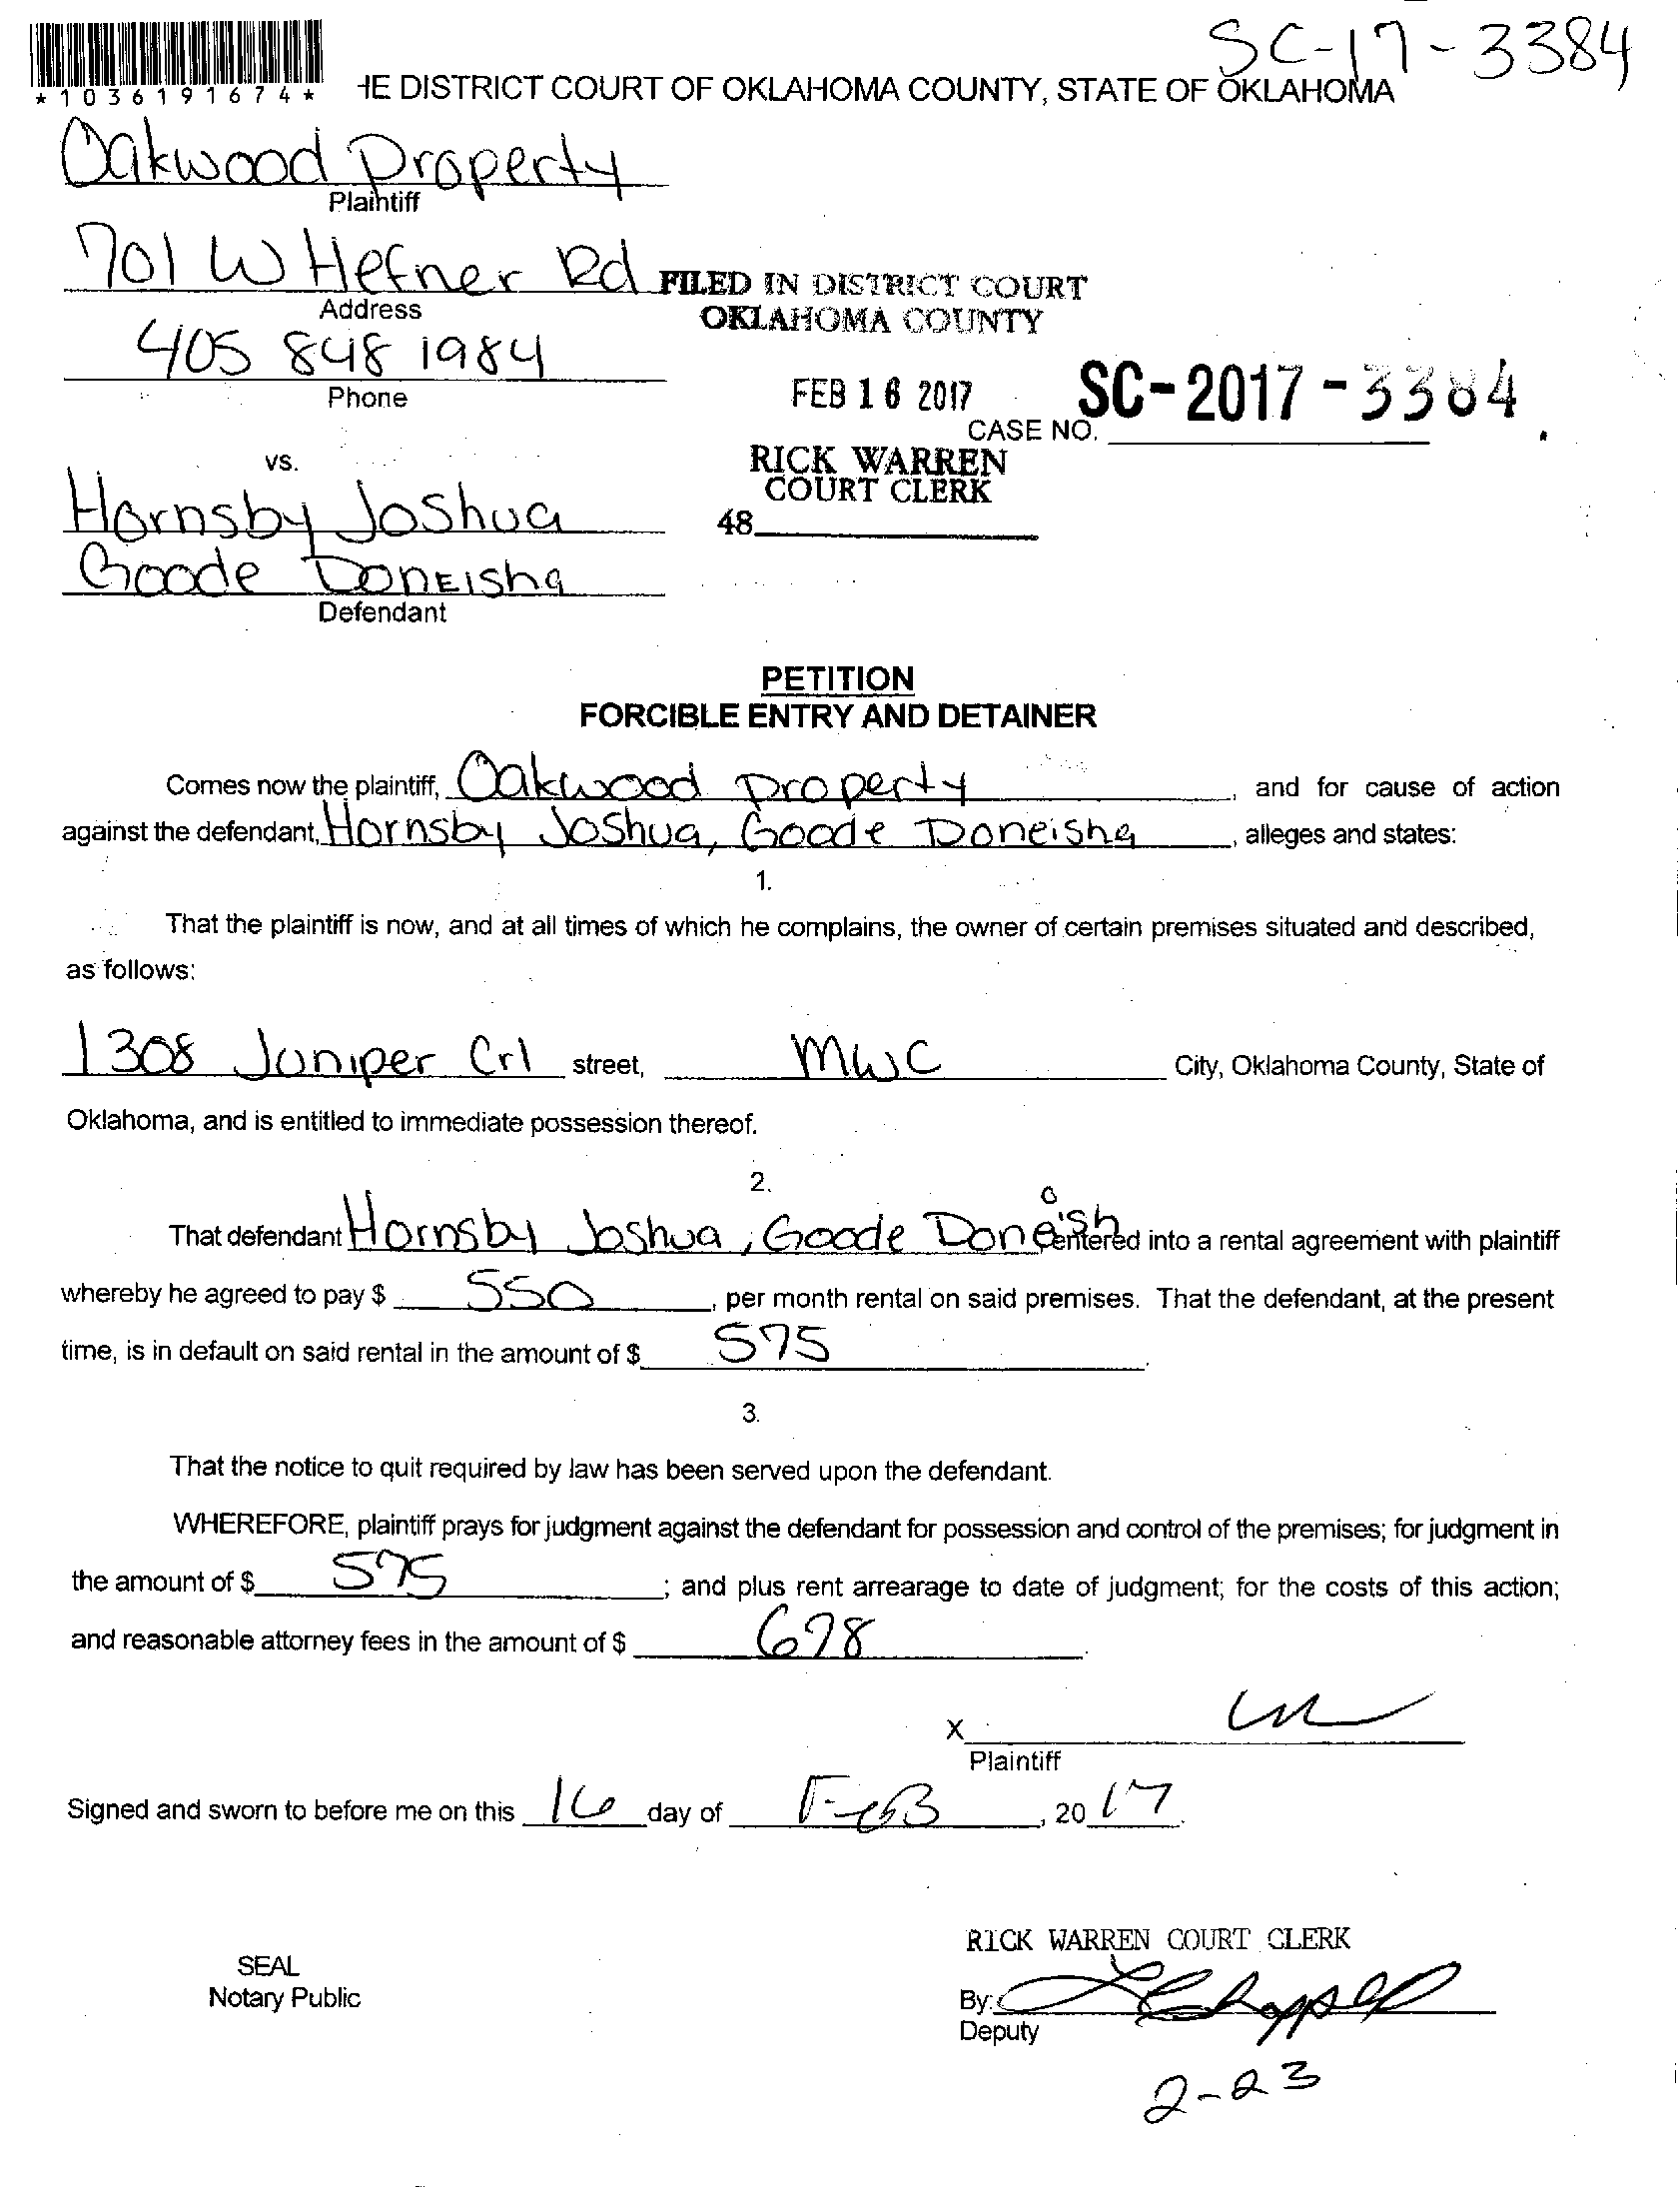 SC-17-3384
*1036191674*
HE DISTRICT COURT OF OKLAHOMA COUNTY, STATE OF OKLAHOMA
Oakwood Property
Plaintiff
701 W Hefner Rd
Address
FILED IN DISTRICT COURT
OKLAHOMA COUNTY
405 848 1984
Phone
FEB 16 2017
CASE NO. SC-2017-3384
vs.
RICK WARREN
COURT CLERK
Hornsby Joshua
48
Goode Doneisha
Defendant
PETITION
FORCIBLE ENTRY AND DETAINER
Comes now the plaintiff, Oakwood Property, and for cause of action
against the defendant, Hornsby Joshua, Goode Doneisha, alleges and states:
1.
That the plaintiff is now, and at all times of which he complains, the owner of certain premises situated and described,
as follows:
1308 Juniper Crl street, MWC City, Oklahoma County, State of
Oklahoma, and is entitled to immediate possession thereof.
2.
That defendant Hornsby Joshua, Goode Doneisha entered into a rental agreement with plaintiff
whereby he agreed to pay $ 550, per month rental on said premises. That the defendant, at the present
time, is in default on said rental in the amount of $ 575.
3.
That the notice to quit required by law has been served upon the defendant.
WHEREFORE, plaintiff prays for judgment against the defendant for possession and control of the premises; for judgment in
the amount of $ 575; and plus rent arrearage to date of judgment; for the costs of this action;
and reasonable attorney fees in the amount of $ 678.
X
Plaintiff
Signed and sworn to before me on this 16 day of FeB, 2017.
RICK WARREN COURT CLERK
SEAL
Notary Public
By:
Deputy
2-23